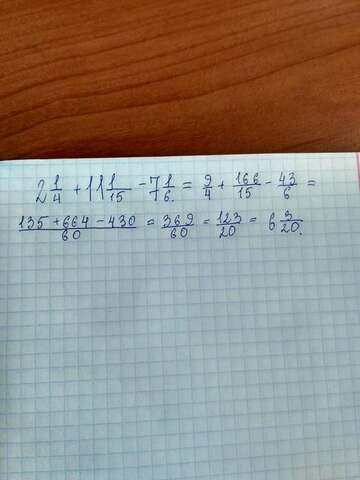 2 1/4 + 11 1/15 - 7 1/6. = 9/4 + 166/15 - 43/6 =
135 + 664 - 430/60 = 369/60 = 123/20 = 6 3/20.